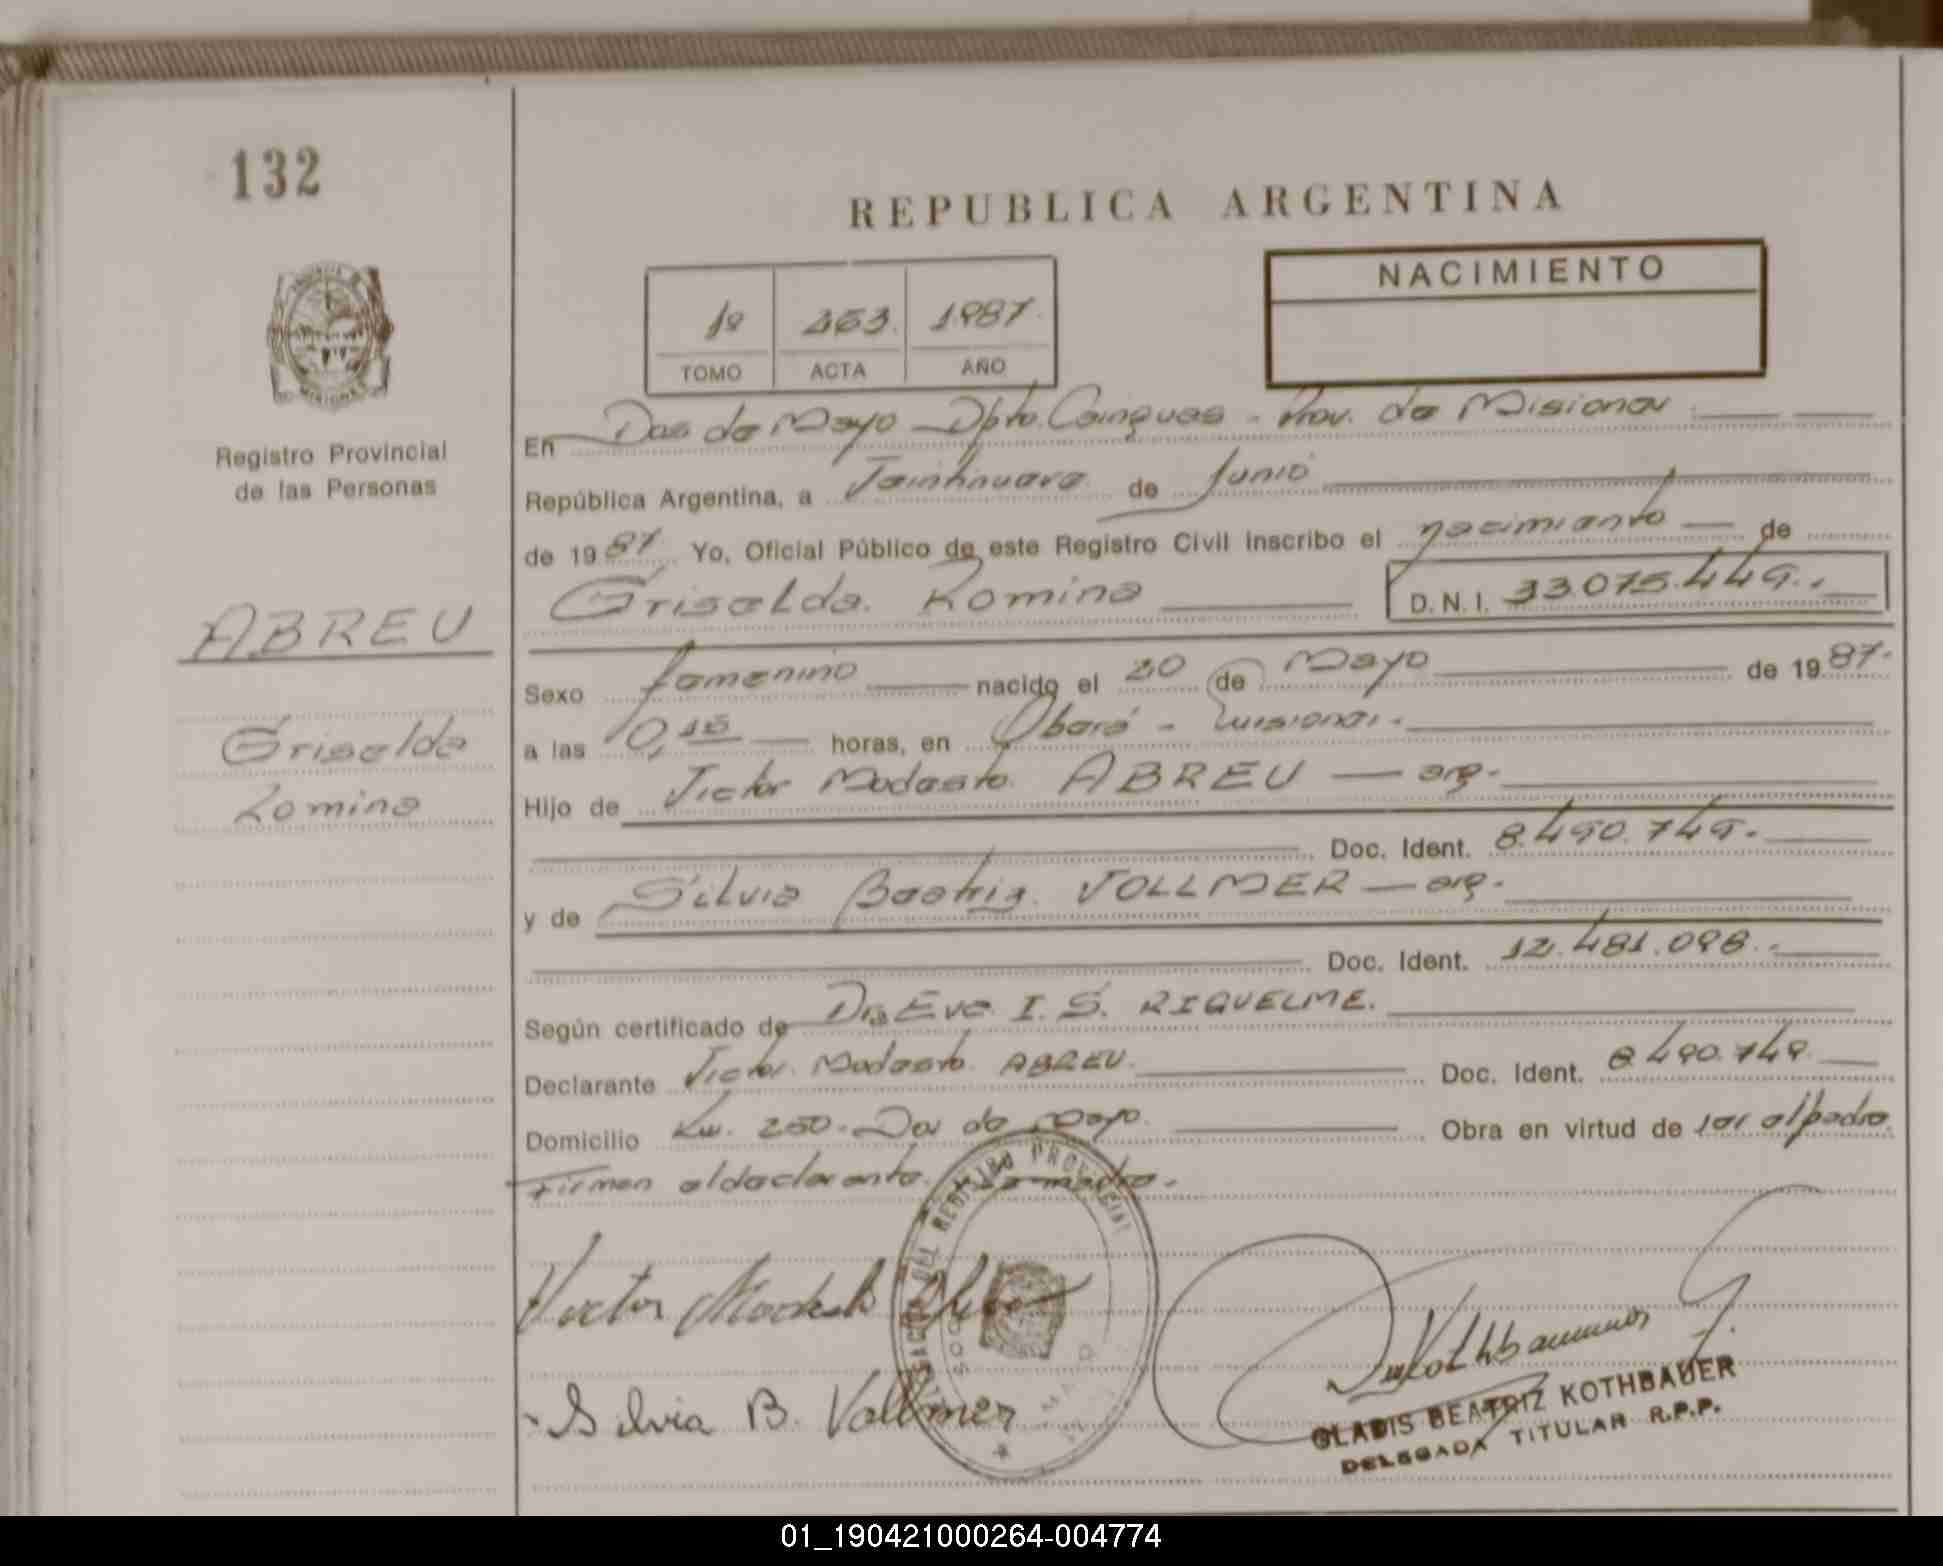 132
REPUBLICA ARGENTINA
NACIMIENTO
1º 263. 1987.
TOMO ACTA AÑO
Registro Provincial
de las Personas
En Dos de Mayo - Dpto. Cainguas - Prov. de Misiones
República Argentina, a de Junio
de 1987. Yo, Oficial Público de este Registro Civil inscribo el nacimiento de
Griselda Romina D. N. I. 33.075.449.
ABREU
Griselda
Romina
Sexo femenino nacido el 20 de Mayo de 1987.
a las 0,15 horas, en Oberá - Misiones.
Hijo de Victor Modesto ABREU arg.
Doc. Ident. 8.490.749.
y de Silvia Beatriz VOLLMER arg.
Doc. Ident. 12.481.098.
Según certificado de Dra Eva I. S. RIQUELME.
Declarante Victor Modesto ABREU. Doc. Ident. 8.490.749.
Domicilio Km. 250. Dos de Mayo. Obra en virtud de ser el padre.
Firman el declarante.
Silvia B. Vollmer
REGISTRO PROVINCIAL
GLADIS BEATRIZ KOTHBAUER
DELEGADA TITULAR R.P.P.
01_190421000264-004774